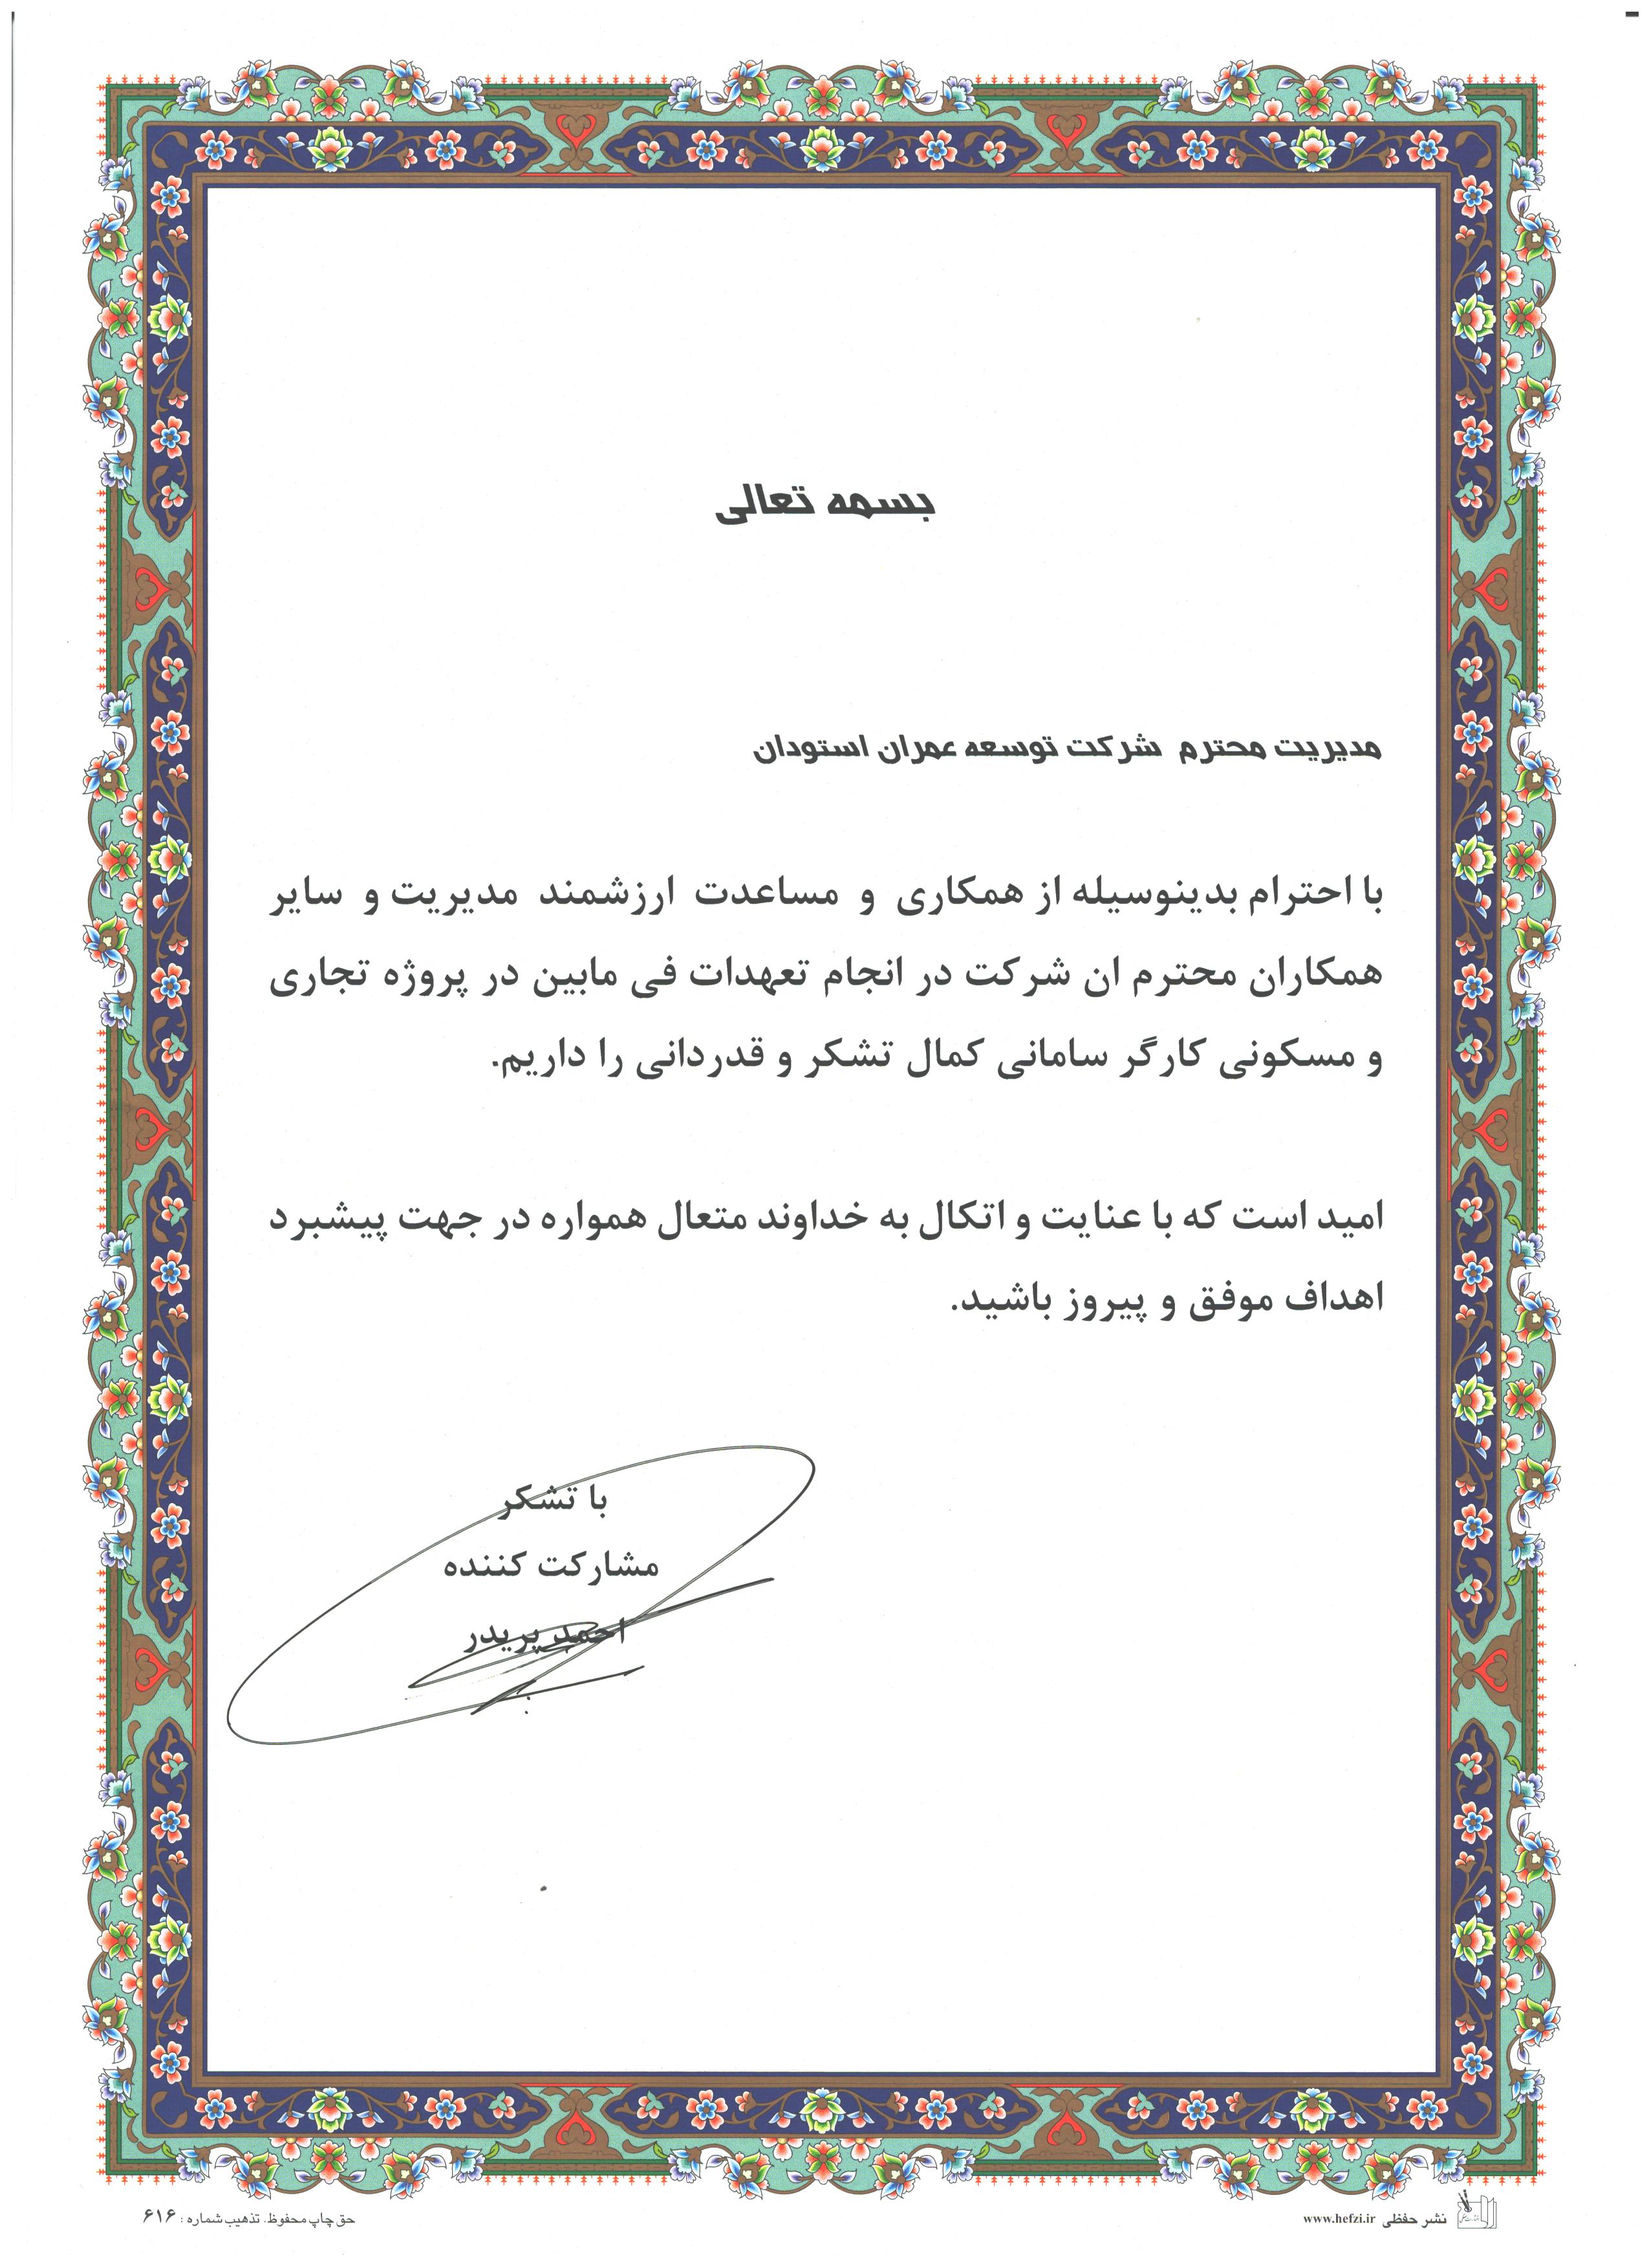 بسمه تعالی
مدیریت محترم شرکت توسعه عمران استودان
با احترام بدینوسیله از همکاری و مساعدت ارزشمند مدیریت و سایر
همکاران محترم ان شرکت در انجام تعهدات فی مابین در پروژه تجاری
و مسکونی کارگر سامانی کمال تشکر و قدردانی را داریم.
امید است که با عنایت و اتکال به خداوند متعال همواره در جهت پیشبرد
اهداف موفق و پیروز باشید.
با تشکر
مشارکت کننده
احمد پریدر
نشر حفظی www.hefzi.ir
حق چاپ محفوظ. تذهیب شماره : ۶۱۶